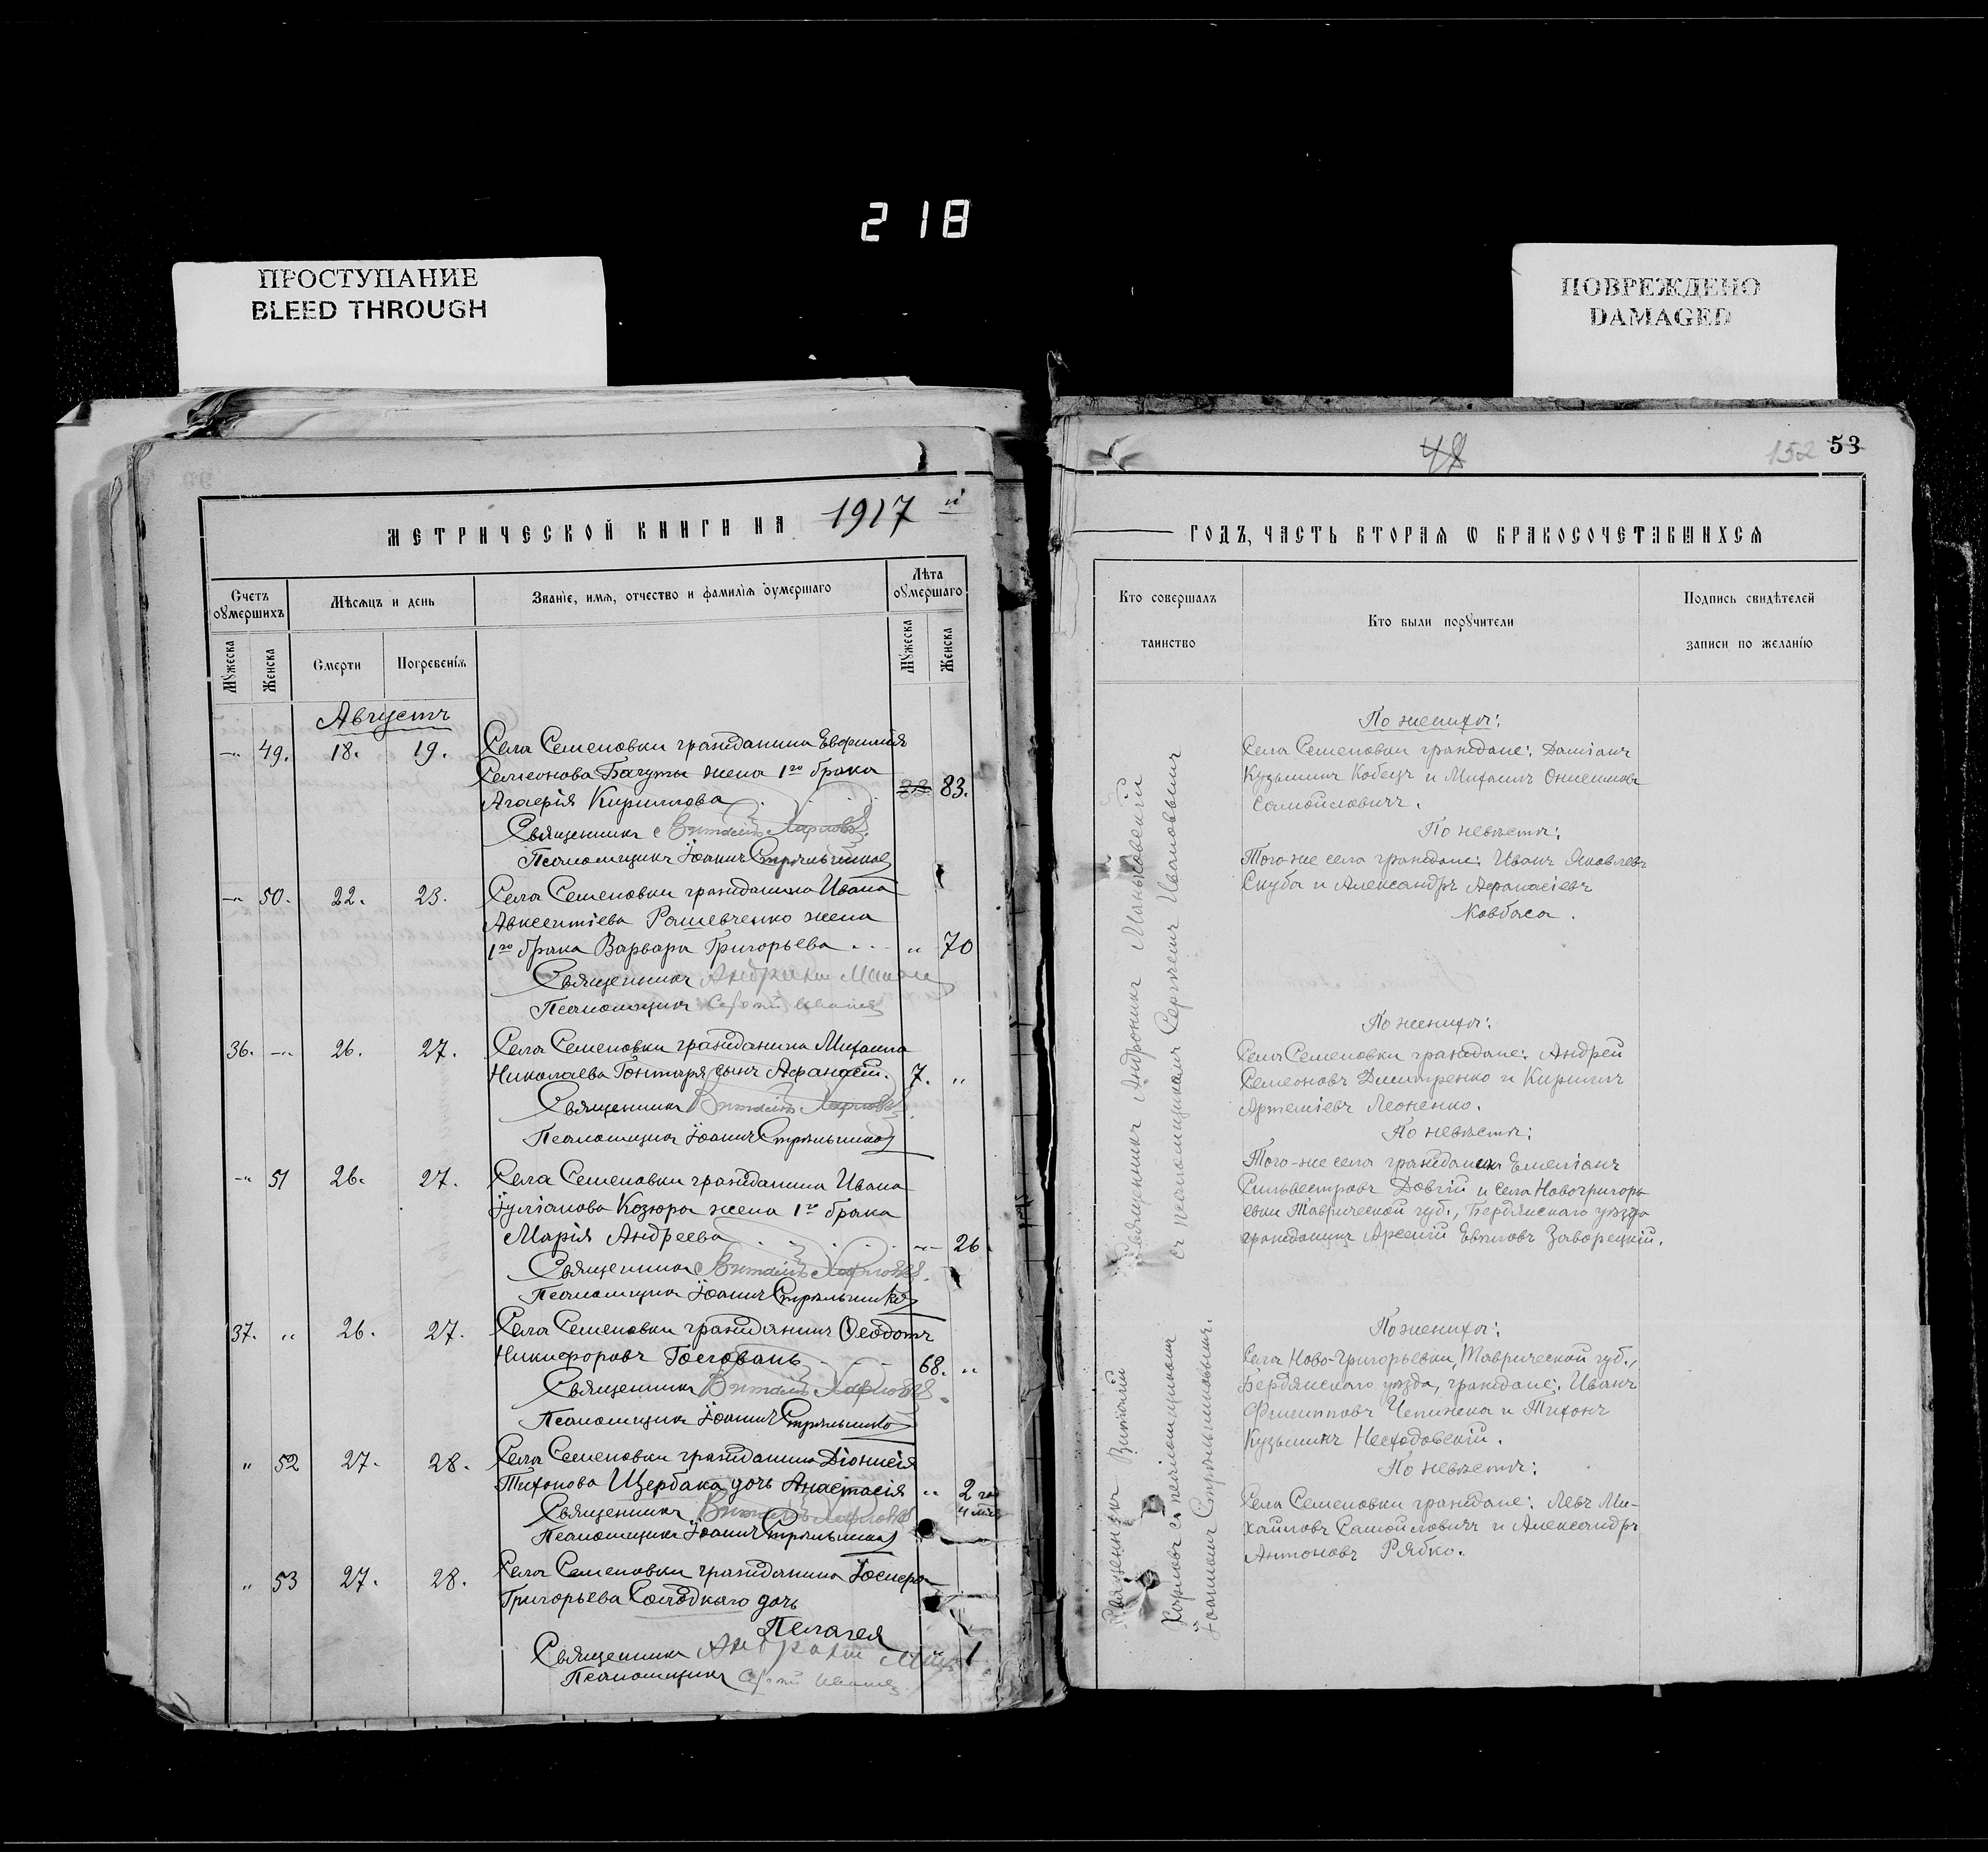 218
ПРОСТУПАНИЕ
BLEED THROUGH
ПОВРЕЖДЕНО
DAMAGED
МЕТРИЧЕСКОЙ КНИГИ НА 1917 й
Счетъ оумершихъ
Мѣсяцъ и день
Званіе, имя, отчество и фамилія оумершаго
Лѣта оумершаго
Мужеска
Женска
Смерти
Погребенія
Мужеска
Женска
Августъ
-"- 49. 18. 19. Села Семеновки гражданина Евфимія
Семеонова Багуты жена 1го брака
Агафія Кириллова . . . 83.
Священникъ Виталій Харловъ
Псаломщикъ Іоаннъ Стрѣльниковъ
-"- 50. 22. 23. Села Семеновки гражданина Ивана
Авксентіева Рашевченко жена
1го брака Варвара Григорьева . . . " 70
Священникъ Андроникъ
Псаломщикъ Сергѣй
36. -"- 26. 27. Села Семеновки гражданина Михаила
Николаева Гонтаря сынъ Афанасій. 7. "
Священникъ Виталій Харловъ
Псаломщикъ Іоаннъ Стрѣльниковъ
-"- 51 26. 27. Села Семеновки гражданина Ивана
Іуліанова Козюра жена 1го брака
Марія Андреева . . . -"- 26
Священникъ Виталій Харловъ
Псаломщикъ Іоаннъ Стрѣльниковъ
37. " 26. 27. Села Семеновки гражданинъ Ѳеодотъ
Никифоровъ 68. "
Священникъ Виталій Харловъ
Псаломщикъ Іоаннъ Стрѣльниковъ
" 52 27. 28. Села Семеновки гражданина Діонисія
Тихонова Щербака дочь Анастасія " 2 год
4 мѣс
Священникъ Виталій Харловъ
Псаломщикъ Іоаннъ Стрѣльниковъ
" 53 27. 28. Села Семеновки гражданина
Григорьева дочь
Пелагея 1
Священникъ Андроникъ
Псаломщикъ Сергѣй
48
152 53
ГОДЪ, ЧАСТЬ ВТОРАЯ Ѡ БРАКОСОЧЕТАВШИХСЯ
Кто совершалъ
таинство
Кто были поручители
Подпись свидѣтелей
записи по желанію
Священникъ Андроникъ Маньковскій
съ псаломщикомъ Сергѣемъ Ивановымъ
Священникъ Виталій
Харловъ съ псаломщикомъ
Іоанномъ Стрѣльниковымъ.
По женихѣ:
Села Семеновки граждане: Даміанъ
Кузьминъ Кобецъ и Михаилъ Онисимовъ
Самойловичъ.
По невѣстѣ:
Того-же села граждане: Иванъ Яковлевъ
Скуба и Александръ Афанасіевъ
Ковбаса.
По женихѣ:
Села Семеновки граждане: Андрей
Семеоновъ Дмитренко и Кириллъ
Артеміевъ Леоненко.
По невѣстѣ:
Того-же села гражданинъ Емеліанъ
Сильвестровъ Довгій и села Новогригорь
евки Таврической губ., Бердянскаго уѣзда
гражданинъ Арсеній Заворецкій.
По женихѣ:
Села Ново-Григорьевки, Таврической губ.,
Бердянскаго уѣзда, граждане: Иванъ
Филипповъ Чепижека и Тихонъ
Кузьминъ Несходовскій.
По невѣстѣ:
Села Семеновки граждане: Левъ Ми-
хайловъ Самойловичъ и Александръ
Антоновъ Рябко.